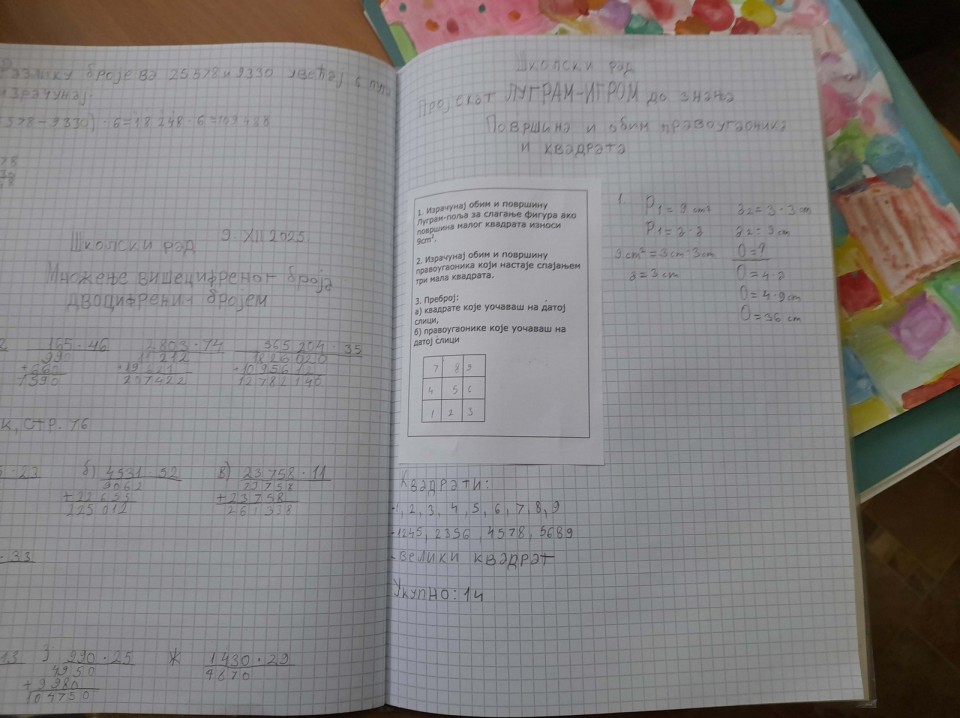 Разлику бројева 25578 и 9330 увећај 6 пута
израчунај.
578-9330) · 6=18 248 · 6=109 488
Школски рад 9. XII 2025
Множење вишецифреног броја
двоцифреним бројем
165 · 46
990
+660
7590
803 · 74
365 204 · 35
1826020
12782140
к, СТР. 76
б) 4531 · 52
9062
+22655
225012
в) 23758 · 11
23758
+23758
261338
· 33
990 · 25
4950
+9980
104750
Ж 1430 · 29
Школски рад
Пројекат ЛУГРАМ-ИГРОМ до знања
Површина и обим правоугаоника
и квадрата
1. Израчунај обим и површину
Луграм-поља за слагање фигура ако
површина малог квадрата износи
9cm².
2. Израчунај обим и површину
правоугаоника који настаје спајањем
три мала квадрата.
3. Преброј:
а) квадрате које уочаваш на датој
слици,
б) правоугаонике које уочаваш на
датој слици
7 8 9
4 5 6
1 2 3
1. P1 = 9 cm²
P1 = a · a
9 cm² = 3 cm · 3 cm
a = 3 cm
a2 = 3 · 3 cm
a2 = 9 cm
O = ?
O = 4 · a
O = 4 · 9 cm
O = 36 cm
Квадрати:
-1, 2, 3, 4, 5, 6, 7, 8, 9
-1245, 2356, 4578, 5689
-Велики квадрат
Укупно: 14